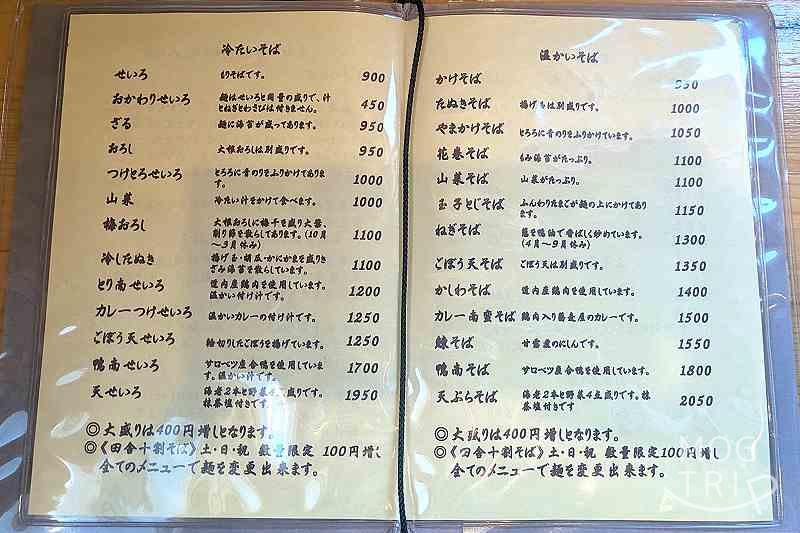 冷たいそば
せいろ もりそばです。 900
おかわりせいろ 麺はせいろと同量の盛りで、汁
とねぎとわさびは付きません。 450
ざる 麺に海苔が盛ってあります。 950
おろし 大根おろしは別盛りです。 950
つけとろせいろ とろろに青のりをふりかけてありま
す。 1000
山菜 冷たい汁をかけて食べます。 1000
梅おろし 大根おろしに梅干を盛り大葉、
削り節を散らしてあります。(10月
～3月休み) 1100
冷したぬき 揚げ玉・胡瓜・かにかまを盛りき
ざみ海苔を散らしています。 1100
とり南せいろ 道内産鶏肉を使用しています。
温かい付け汁です。 1200
カレーつけせいろ 温かいカレーの付け汁です。 1250
ごぼう天せいろ 輪切りしたごぼうを揚げています。 1250
鴨南せいろ サロベツ産合鴨を使用していま
す。温かい汁です。 1700
天せいろ 海老2本と野菜4点盛りです。
抹茶塩付きです。 1950
◎大盛りは400円増しとなります。
◎《田舎十割そば》土・日・祝 数量限定 100円増し
全てのメニューで麺を変更出来ます。
温かいそば
かけそば
たぬきそば 揚げ玉は別盛りです。 1000
やまかけそば とろろに青のりをふりかけています。 1050
花巻そば もみ海苔がたっぷり。 1100
山菜そば 山菜がたっぷり。 1100
玉子とじそば ふんわりたまごが麺の上にかけてあり
ます。 1150
ねぎそば 葱を鴨油で香ばしく炒めています。
(4月～9月休み) 1300
ごぼう天そば ごぼう天は別盛りです。 1350
かしわそば 道内産鶏肉を使用しています。 1400
カレー南蛮そば 鶏肉入り蕎麦屋のカレーです。 1500
鰊そば 甘露煮のにしんです。 1550
鴨南そば サロベツ産合鴨を使用しています。 1800
天ぷらそば 海老2本と野菜4点盛りです。抹
茶塩付きです 2050
◎大盛りは400円増しとなります。
◎《田舎十割そば》土・日・祝 数量限定100円増し
全てのメニューで麺を変更出来ます。
MOG
TRIP